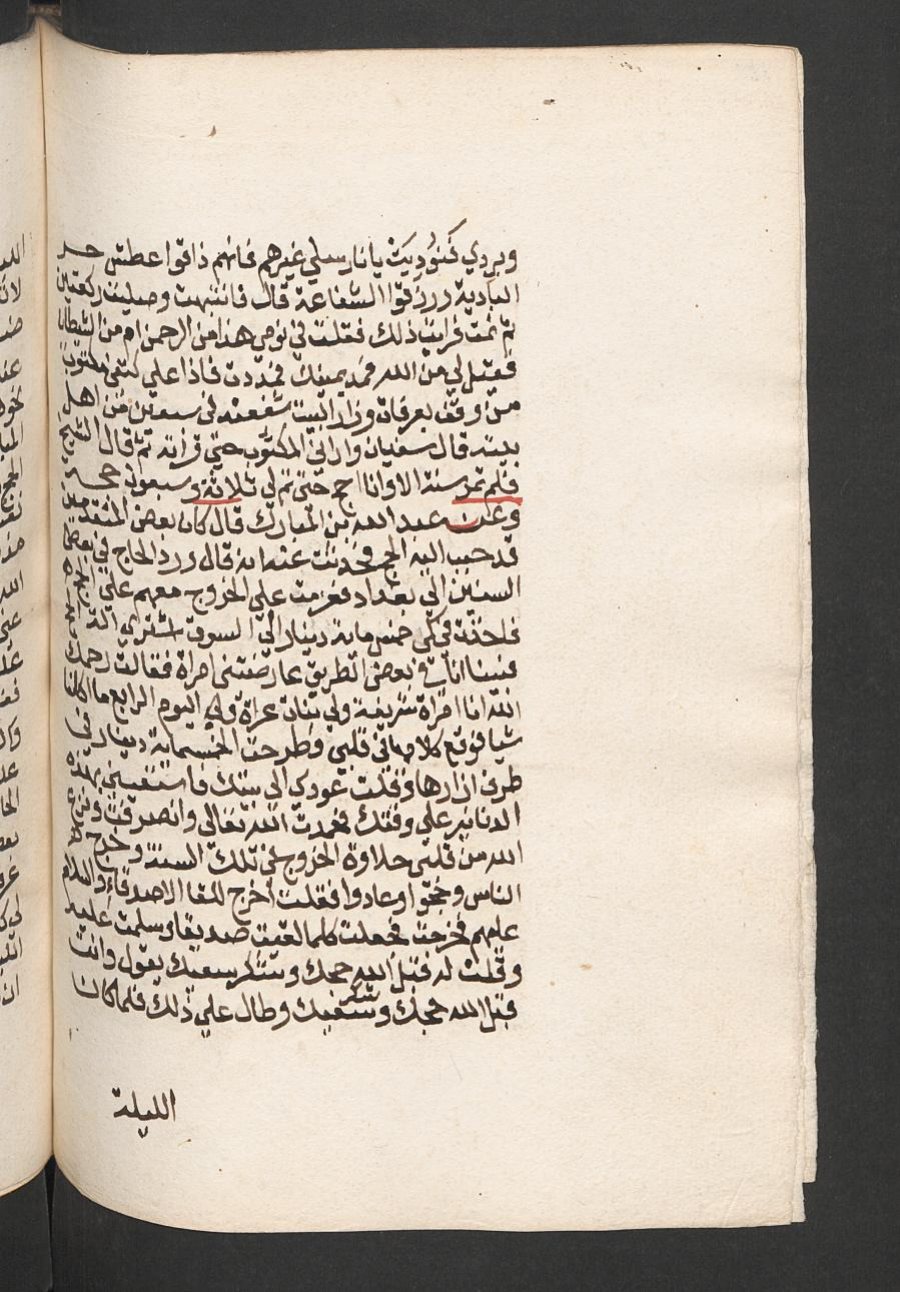 وبردي فنوديت يا نار سلي غيرهم فانهم ذاقوا عطش حر
البادية ورزقوا الشفاعة قال فانتبهت وصليت ركعتين
ثم نمت فرايت ذلك فقلت في نومي هذا من الرحمن ام من الشيطان
فقيل لي من الله فمد يمينك فمددت فاذا علي كفي مكتوب
من وقف بعرفات وزار البيت شفعته في سبعين من اهل
بيته قال سفيان واراني المكتوب حتي قراته ثم قال الشيخ
فلم تمر سنة الا وانا احج حتي تم لي ثلاثة وسبعون حجه
وعن عبد الله بن المبارك قال كان بعض المتقدمين
قد حبب اليه الحج فحدثت عنه انه قال ورد الحاج في بعض
السنين الي بغداد فعزمت علي الخروج معهم علي الحج
فاخذت في كمي خمس ماية دينار الي السوق اشتري الة الحج
فبينا انا في بعض الطريق عارضتني امراة فقالت رحمك
الله انا امراة شريفة ولي بنات عراة وفي اليوم الرابع ما اكلنا
شيا فوقع كلامها في قلبي وطرحت الخمسماية دينار في
طرف ازارها وقلت عودي الي بيتك فاستعيني بهذه
الدنانير علي وقتك فحمدت الله تعالي وانصرفت ونزع
الله من قلبي حلاوة الخروج في تلك السنة وخرج
الناس وحجوا وعادوا فقلت اخرج للقا الاصدقاء والسلام
عليهم فخرجت فجعلت كلما لقيت صديقا وسلمت عليه
وقلت له قبل الله حجك وشكر سعيك يقول وانت
قبل الله حجك وشكر سعيك وطال علي ذلك فلما كان
الليلة